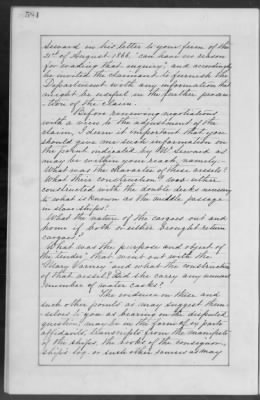 541
Seward in his letter to your firm of the
21st of August 1866, "can hear no reason
for evading that inquiry," and accordingly
he invited the claimant to furnish the
Department with any information that
might be useful in the further prosecu-
-tion of the claim.
Before renewing negotiations
with a view to the adjustment of the
claim, I deem it important that you
should give me such information on
the points indicated by Mr. Seward as
may be within your reach, namely-
What was the character of these vessels?
What their construction? Was either
constructed with the double decks necessary
to what is known as the middle passage
in slave ships?
What the nature of the cargoes out and
home if both or either brought return
cargoes?
What was the purpose and object of
the "tender" that went out with the
Mary Varney and what the construction
of that vessel? Did she carry any unusual
number of water casks?
The evidence on these and
such other points as may suggest them-
-selves to you as bearing on the disputed
question, may be in the form of ex parte
affidavits, transcripts from the manifests
of the ships, the books of the consignor,
ship's log, or such other sources as may